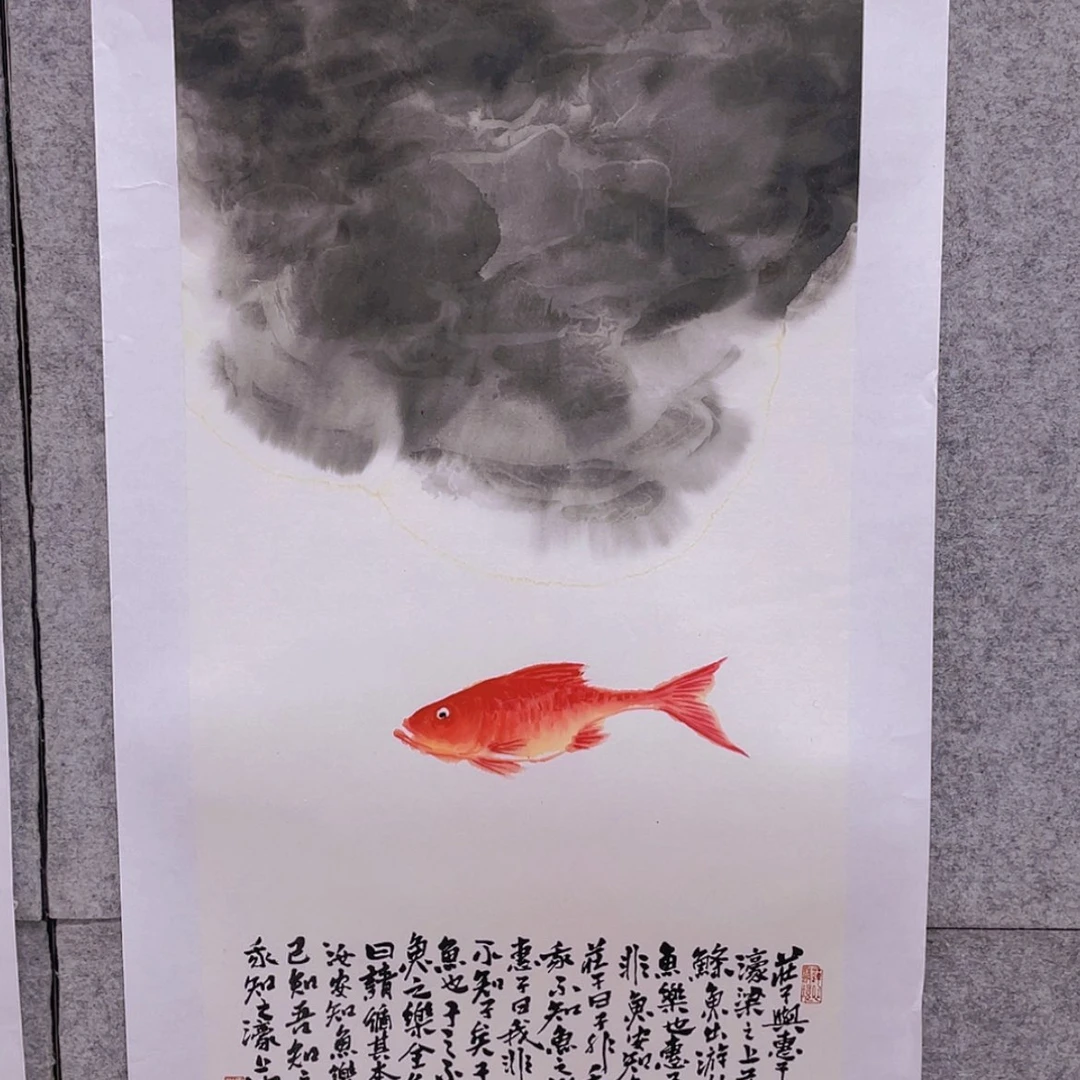 莊子與惠子
濠梁之上莊
鯈魚出游
魚樂也惠子
非魚安知
莊子曰子非
我不知魚之
惠子曰我非
不知子矣子
魚也子之不
魚之樂全
曰請循其本
汝安知魚樂
已知吾知之
我知之濠上